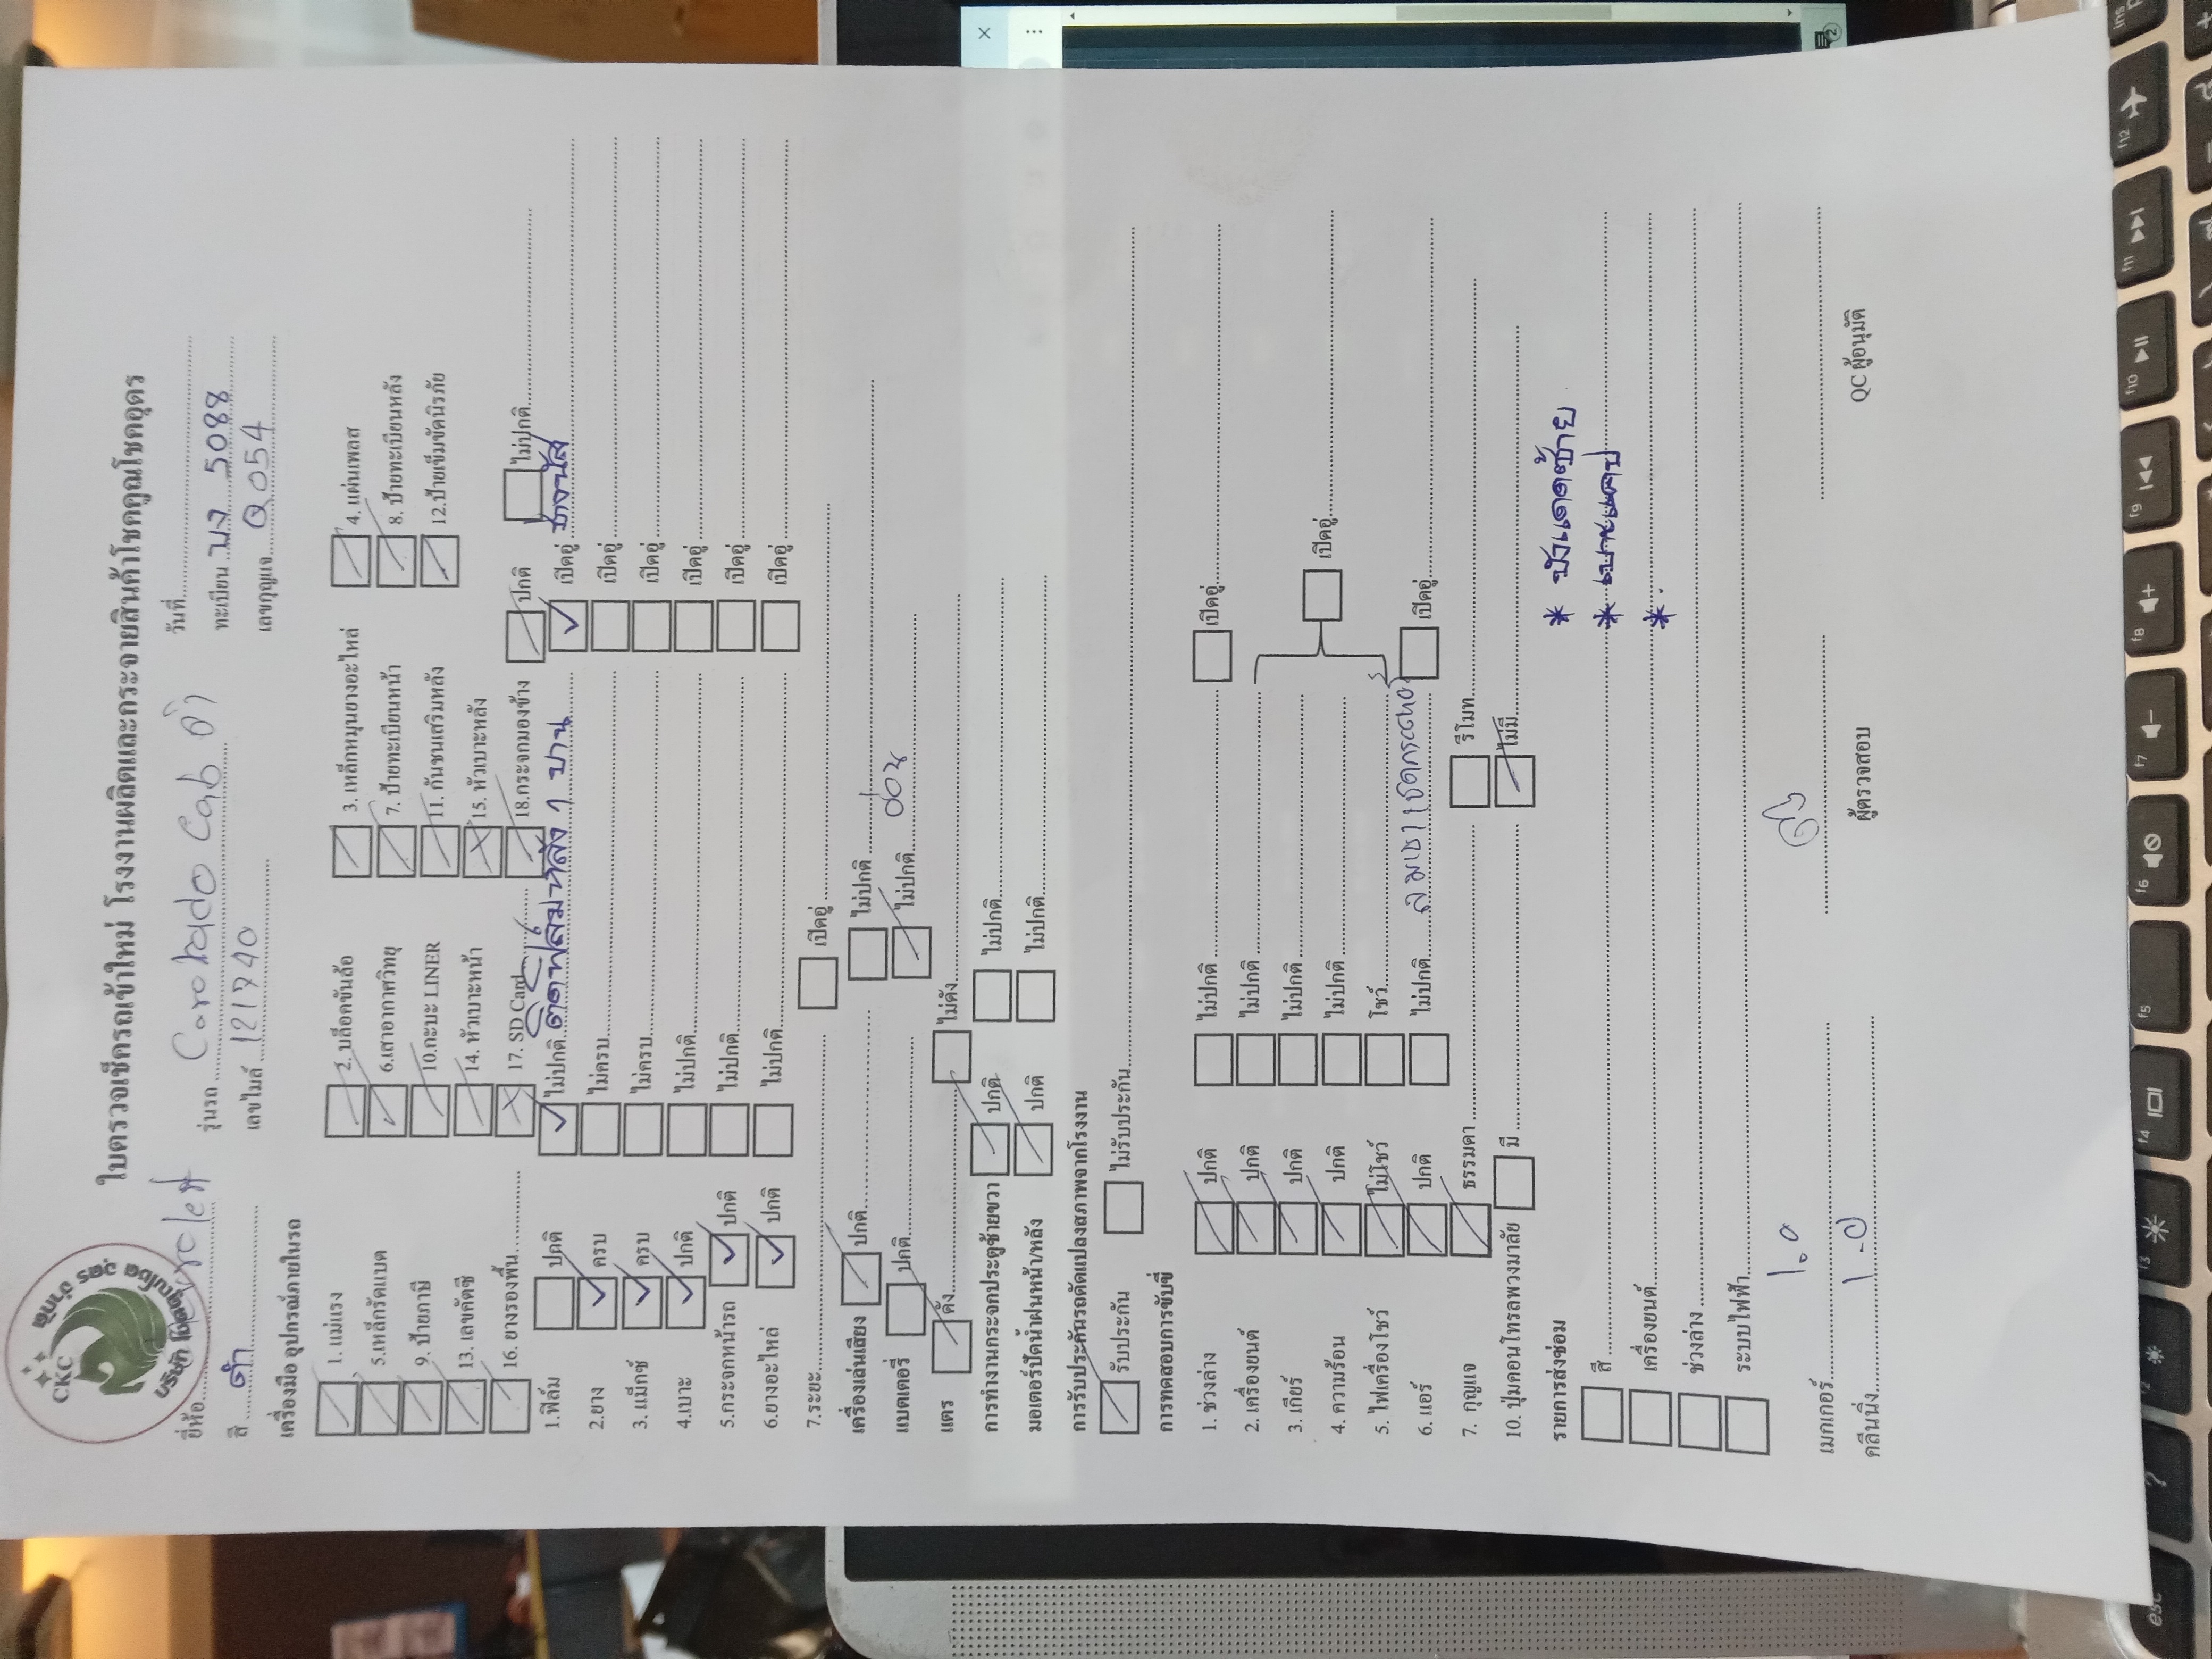 ใบตรวจเช็ครถเข้าใหม่ โรงงานผลิตและกระจายสินค้าโชคคูณโชคอุดร
CKC
ยี่ห้อ รุ่นรถ Colorado Cab ดำ วันที่
สี ดำ เลขไมล์ 121740 ทะเบียน บง 5088
เลขกุญแจ Q054
เครื่องมือ อุปกรณ์ภายในรถ
1. แม่แรง 2. บล็อคขันล้อ 3. เหล็กหมุนยางอะไหล่ 4. แผ่นเพลส
5.เหล็กรัดแบต 6.เสาอากาศวิทยุ 7. ป้ายทะเบียนหน้า 8. ป้ายทะเบียนหลัง
9. ป้ายภาษี 10.กะบะ LINER 11. กันชนเสริมหลัง 12.ป้ายเข็มขัดนิรภัย
13. เลขคัตซี 14. หัวเบาะหน้า 15. หัวเบาะหลัง
16. ยางรองพื้น 17. SD Card 18.กระจกมองข้าง ปกติ ไม่ปกติ
1.ฟิล์ม ปกติ ไม่ปกติ ติดฟิล์มหลัง 1 บาน เปิดอู่ ช่างบัส
2.ยาง ครบ ไม่ครบ เปิดอู่
3. แม็กซ์ ครบ ไม่ครบ เปิดอู่
4.เบาะ ปกติ ไม่ปกติ เปิดอู่
5.กระจกหน้ารถ ปกติ ไม่ปกติ เปิดอู่
6.ยางอะไหล่ ปกติ ไม่ปกติ เปิดอู่
7.ระยะ เปิดอู่
เครื่องเล่นเสียง ปกติ ไม่ปกติ
แบตเตอรี่ ปกติ ไม่ปกติ อ่อน
แตร ดัง ไม่ดัง
การทำงานกระจกประตูซ้ายขวา ปกติ ไม่ปกติ
มอเตอร์ปัดน้ำฝนหน้า/หลัง ปกติ ไม่ปกติ
การรับประกันรถดัดแปลงสภาพจากโรงงาน
รับประกัน ไม่รับประกัน
การทดสอบการขับขี่
1. ช่วงล่าง ปกติ ไม่ปกติ เปิดอู่
2. เครื่องยนต์ ปกติ ไม่ปกติ
3. เกียร์ ปกติ ไม่ปกติ เปิดอู่
4. ความร้อน ปกติ ไม่ปกติ
5. ไฟเครื่องโชว์ ไม่โชว์ โชว์
6. แอร์ ปกติ ไม่ปกติ เปิดอู่
7. กุญแจ ธรรมดา รีโมท
10. ปุ่มคอนโทรลพวงมาลัย มี ไม่มี
รายการส่งซ่อม
* บังแดดซ้าย
สี
เครื่องยนต์
ช่วงล่าง
ระบบไฟฟ้า
เมกเกอร์
คลีนนิ่ง
ผู้ตรวจสอบ QC ผู้อนุมัติ
esc
f3 f4 f5 f6 f7 f8 f9 f10 f11 f12 ins